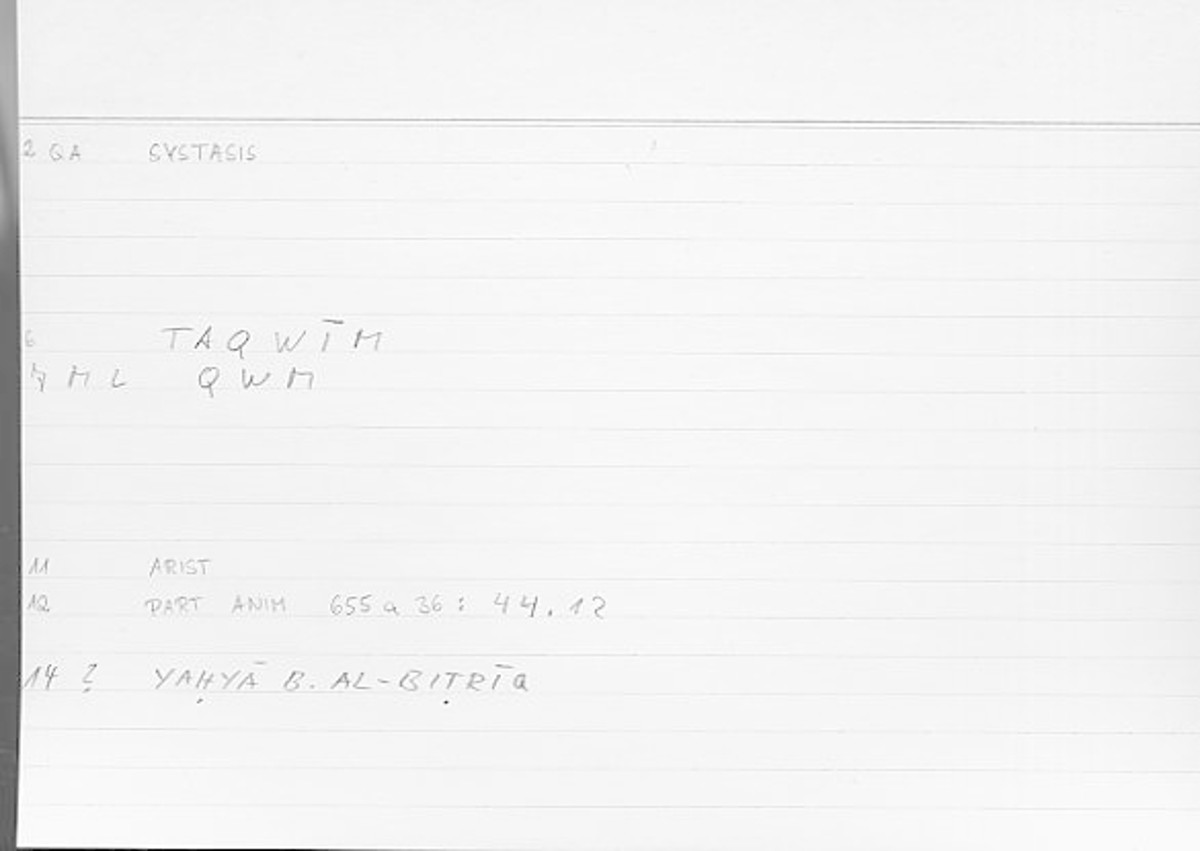 2 QA SYSTASIS
6 TAQWĪM
7 ML QWM
11 ARIST
12 PART ANIM 655 a 36 : 44.12
14 ? YAḤYĀ B. AL-BIṬRĪQ